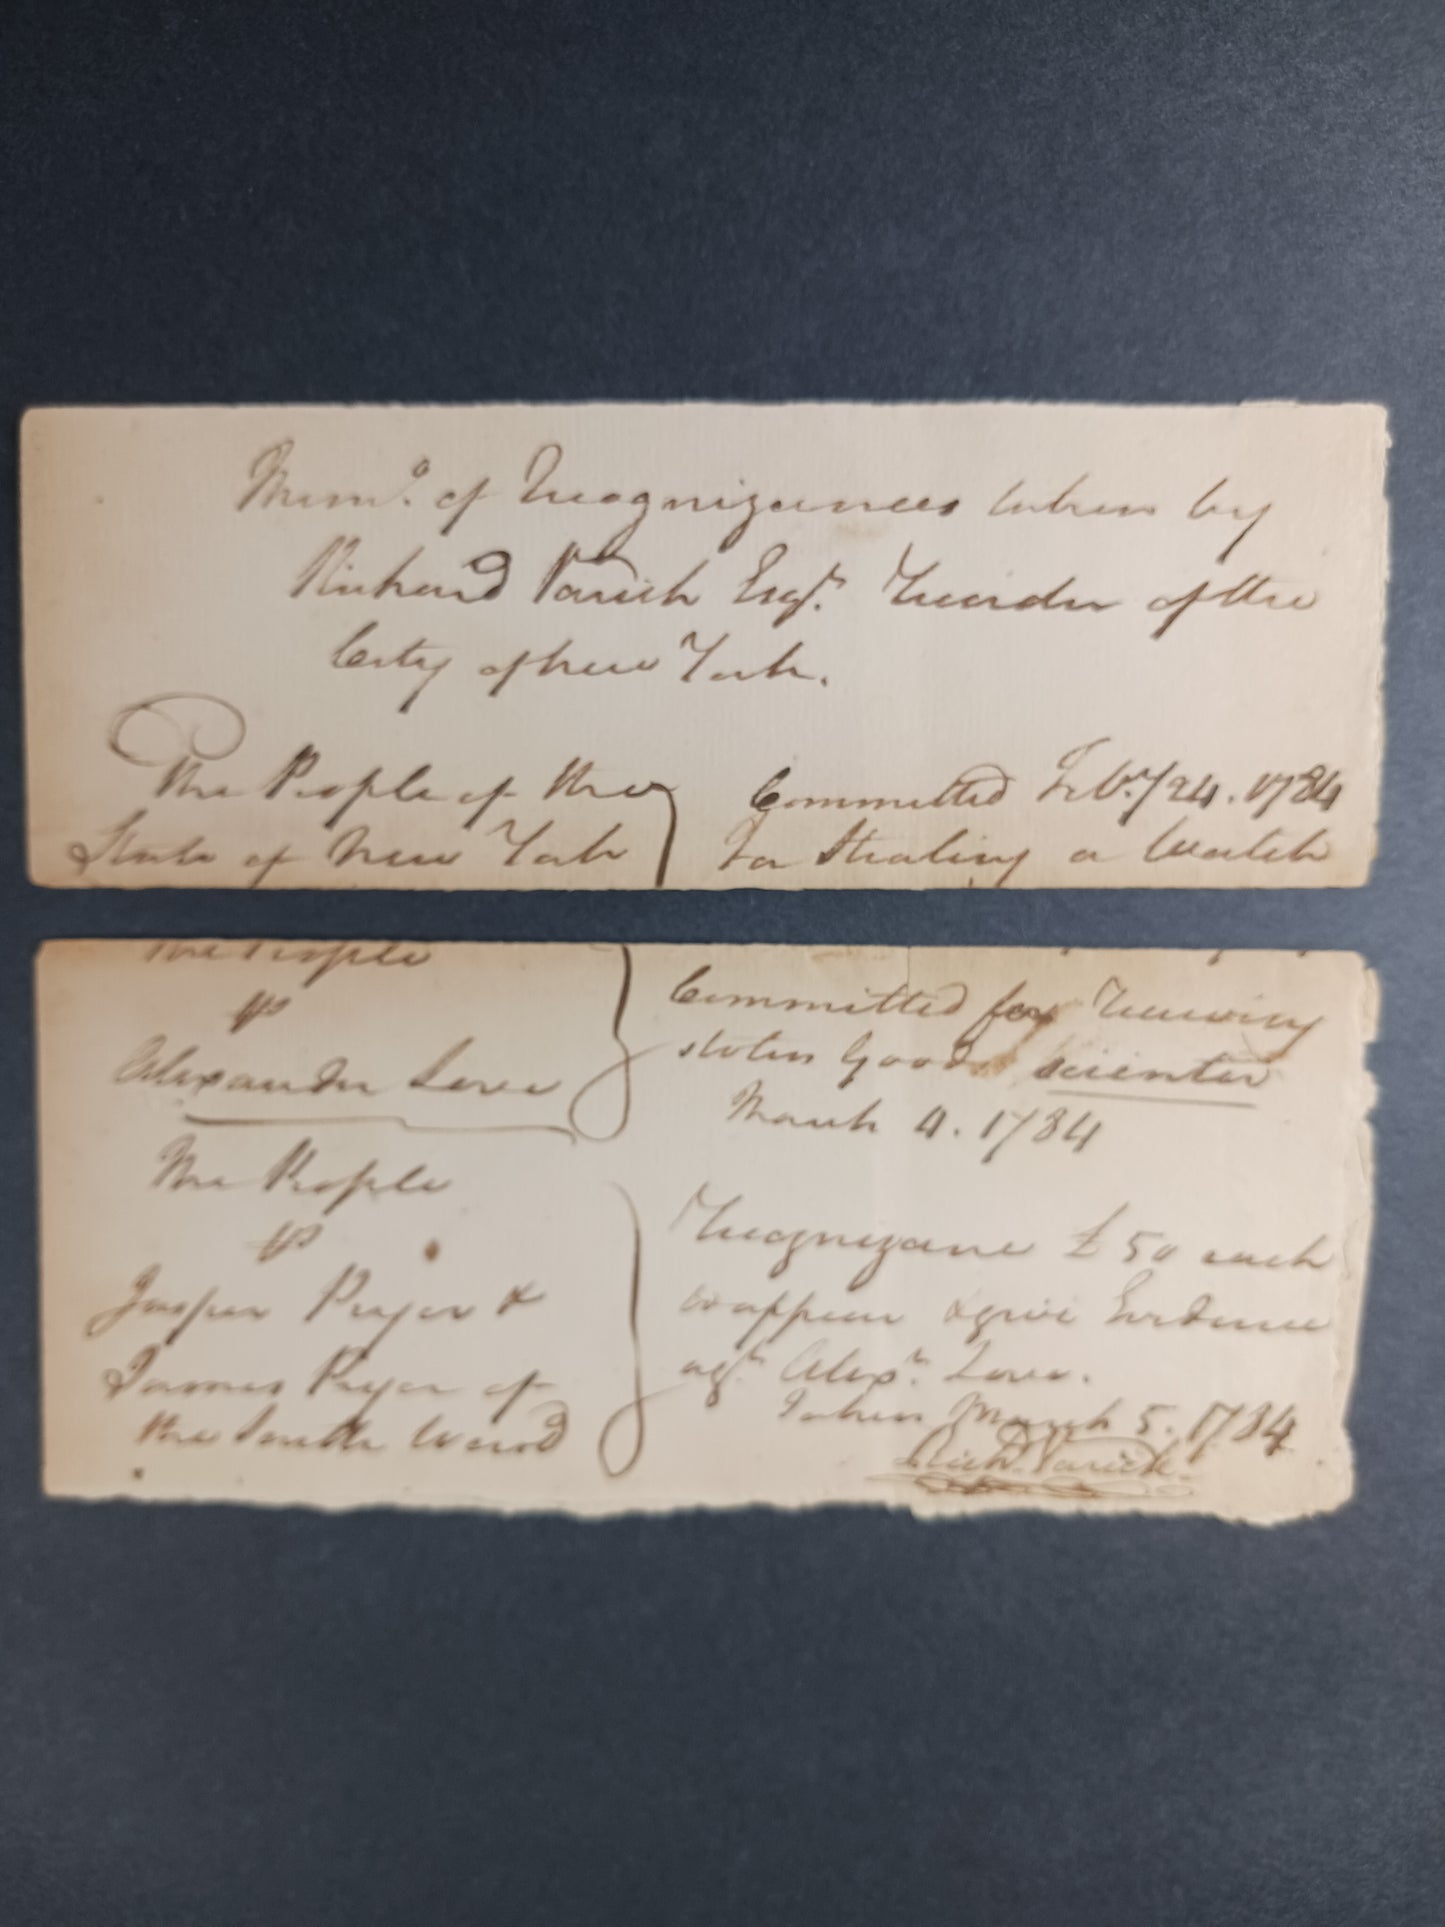 Memo. of Recognizances taken by
Richard Varick Esqr. Recorder of the
City of New York.
The People of the
State of New York
Committed Feby 24. 1784
For Stealing a Watch
The People
vs
Alexander Love
Committed for Receiving
stolen Goods scienter
March 4. 1784
The People
vs
Jasper Pryer &
James Pryer of
the South Ward
Recognizance £50 each
to appear & give Evidence
agt. Alexr. Love.
Taken March 5. 1784
Richd. Varick